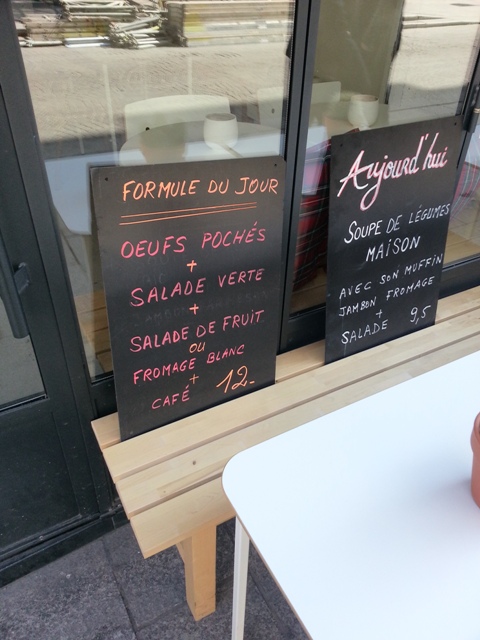 FORMULE DU JOUR
OEUFS POCHÉS
+
SALADE VERTE
+
SALADE DE FRUIT
OU
FROMAGE BLANC
+
CAFÉ 12.-
Aujourd'hui
SOUPE DE LÉGUMES
MAISON
AVEC SON MUFFIN
JAMBON FROMAGE
+
SALADE 9,5